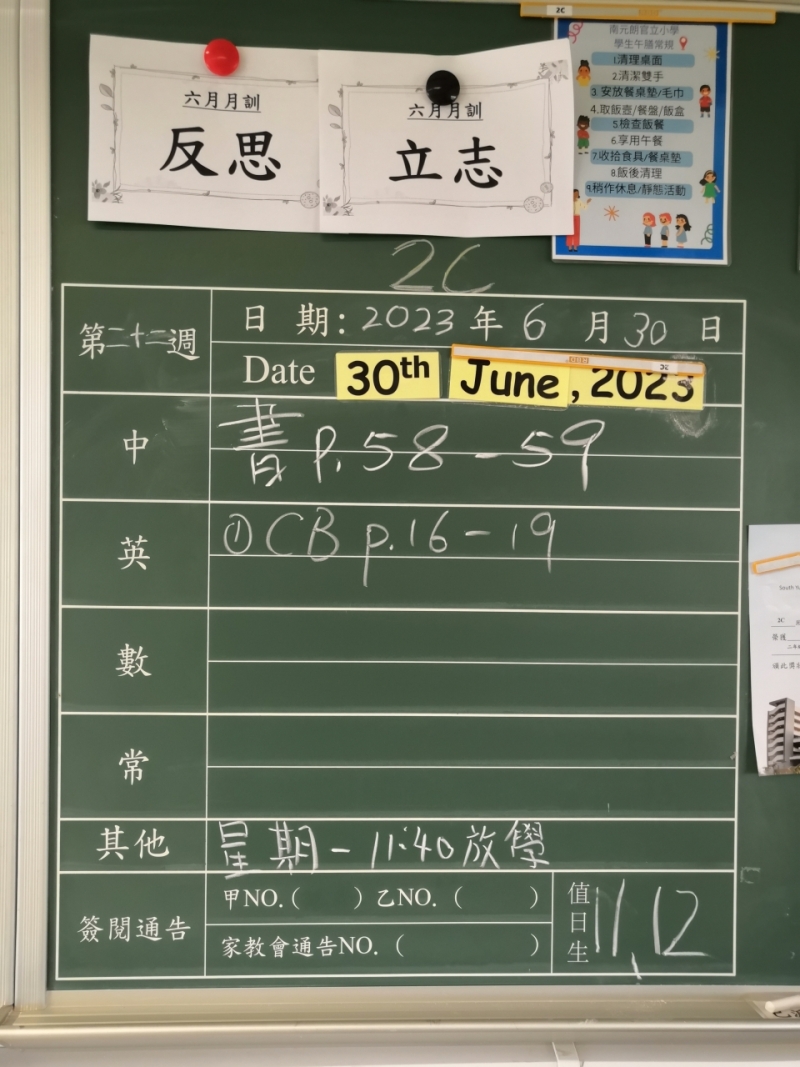 六月月訓
反思
六月月訓
立志
2C
南元朗官立小學
學生午膳常規
1清理桌面
2清潔雙手
3. 安放餐桌墊/毛巾
4.取飯壺/餐盤/飯盒
5.檢查飯餐
6.享用午餐
7.收拾食具/餐桌墊
8.飯後清理
9.稍作休息/靜態活動
2C
第二十二週
日 期：2023 年 6 月 30 日
Date 30th June, 2023
中
書 P. 58 - 59
英
① CB p.16 - 19
數
常
其他
星期一 11:40 放學
簽閱通告
甲NO.( ) 乙NO. ( )
家教會通告NO. ( )
值日生
11、12
2C